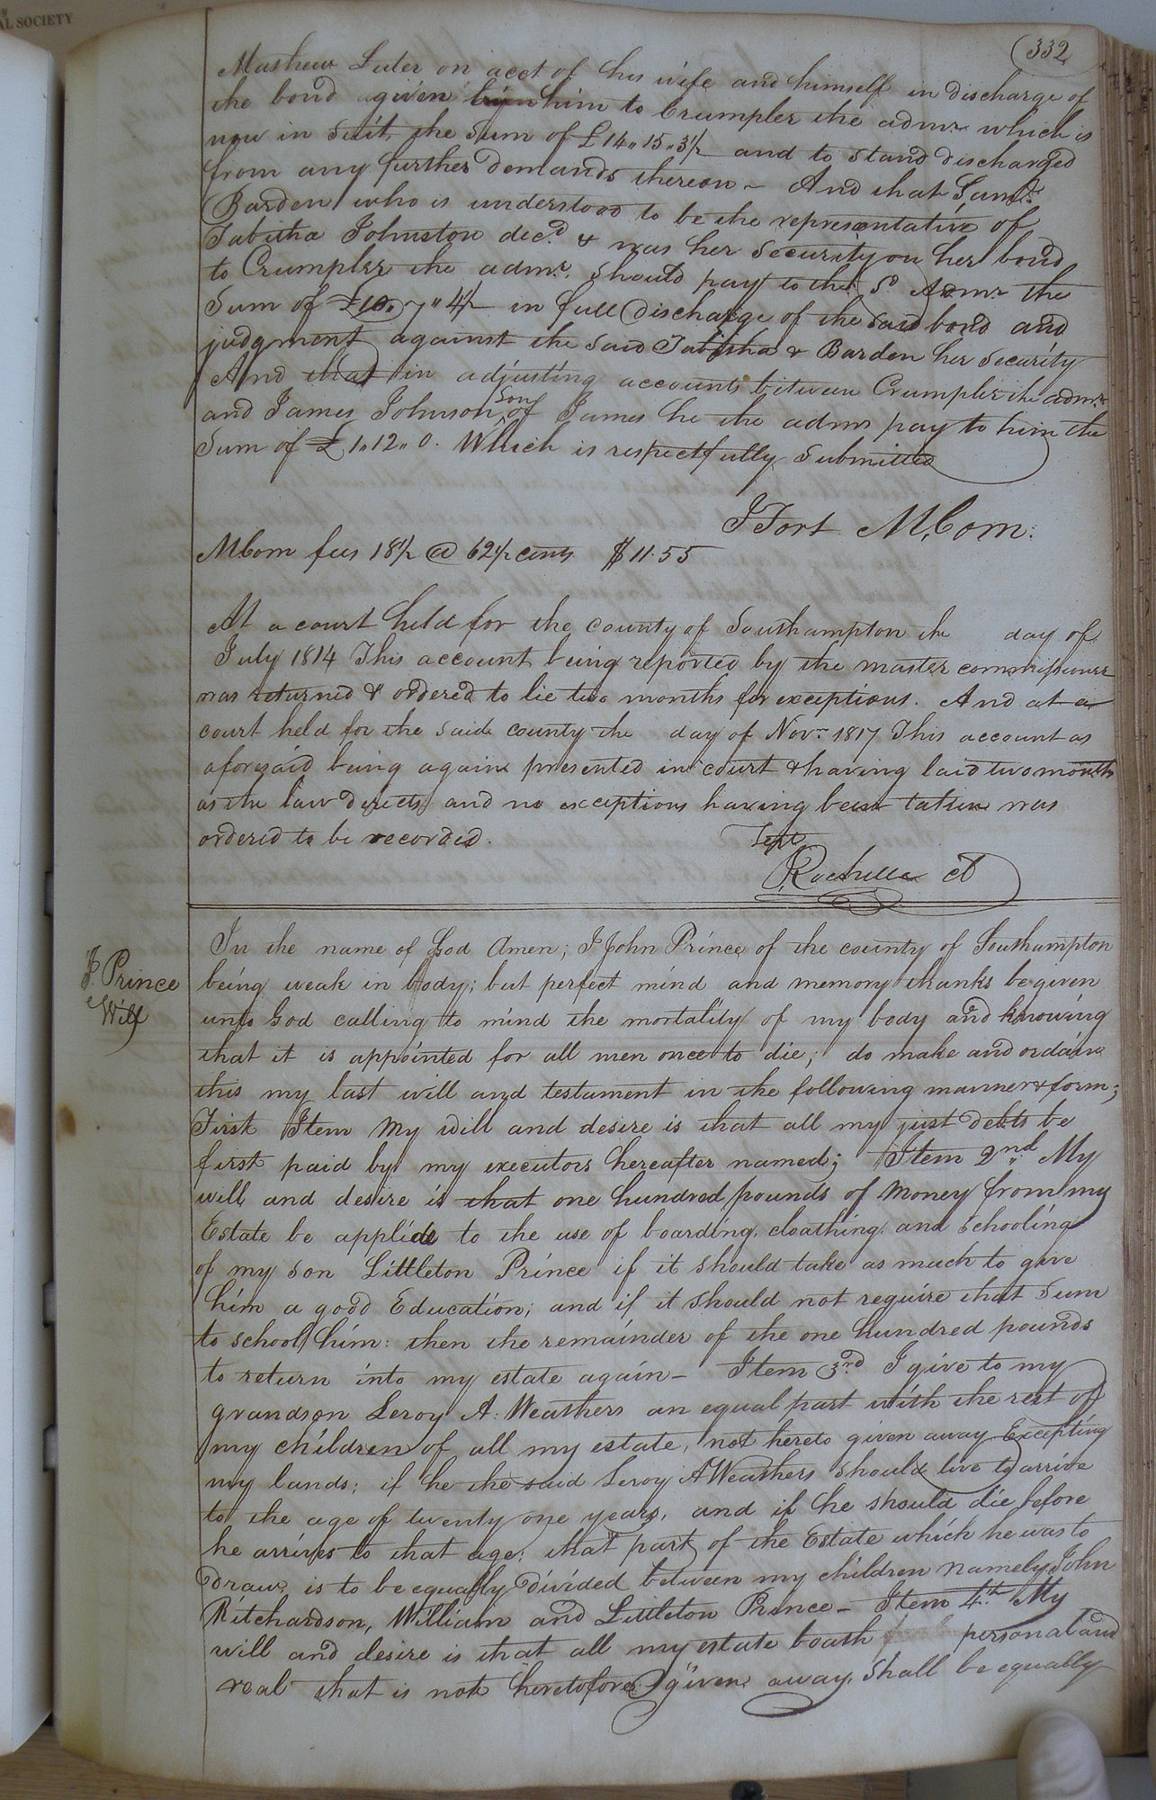 AL SOCIETY
332
Mathew Luter on acct of his wife and himself in discharge of
the bond given by him to Crumpler the admr which is
now in suit, the sum of £14„15„3½ and to stand discharged
from any further demands thereon – And that Saml.
Barden who is understood to be the representative of
Tabitha Johnston decd. & was her security on her bond
to Crumpler the admr. should pay to the sd Admr the
Sum of £10„7„4½ in full discharge of the said bond and
judgment against the said Tabitha & Barden her security
And that in adjusting accounts between Crumpler the admr
and James Johnson son of James he the admr pay to him the
Sum of £1„12„0. Which is respectfully submitted
J Fort M.Com:
MCom fees 18½ @ 62½ cents $11.55
At a court held for the county of Southampton the day of
July 1814 This account being reported by the master commissioner
was returned & ordered to lie two months for exceptions. And at a
court held for the said county the day of Novr 1817 This account as
aforesaid being again presented in court & having laid two months
as the law directs and no exceptions having been taken was
ordered to be recorded.
Test
Rochelle
J Prince
Will
In the name of God Amen; I John Prince of the county of Southampton
being weak in body; but perfect mind and memory thanks be given
unto God calling to mind the mortality of my body and knowing
that it is appointed for all men once to die; do make and ordain
this my last will and testament in the following manner & form;
First Item My will and desire is that all my just debts be
first paid by my executors hereafter named; Item 2nd My
will and desire is that one hundred pounds of Money from my
Estate be applide to the use of boarding, cloathing and schooling
of my son Littleton Prince if it should take as much to give
him a good Education; and if it should not require that sum
to school him: then the remainder of the one hundred pounds
to return into my estate again – Item 3rd I give to my
grandson Leroy A. Weathers an equal part with the rest of
my children of all my estate, not hereto given away Excepting
my lands; if he the said Leroy A Weathers should live to arrive
to the age of twenty one years, and if he should die before
he arrives to that age; that part of the Estate which he was to
Draw, is to be equally divided between my children namely John
Ritchardson, William and Littleton Prince – Item 4th My
will and desire is that all my estate boath personal and
real that is not heretofore given away, shall be equally